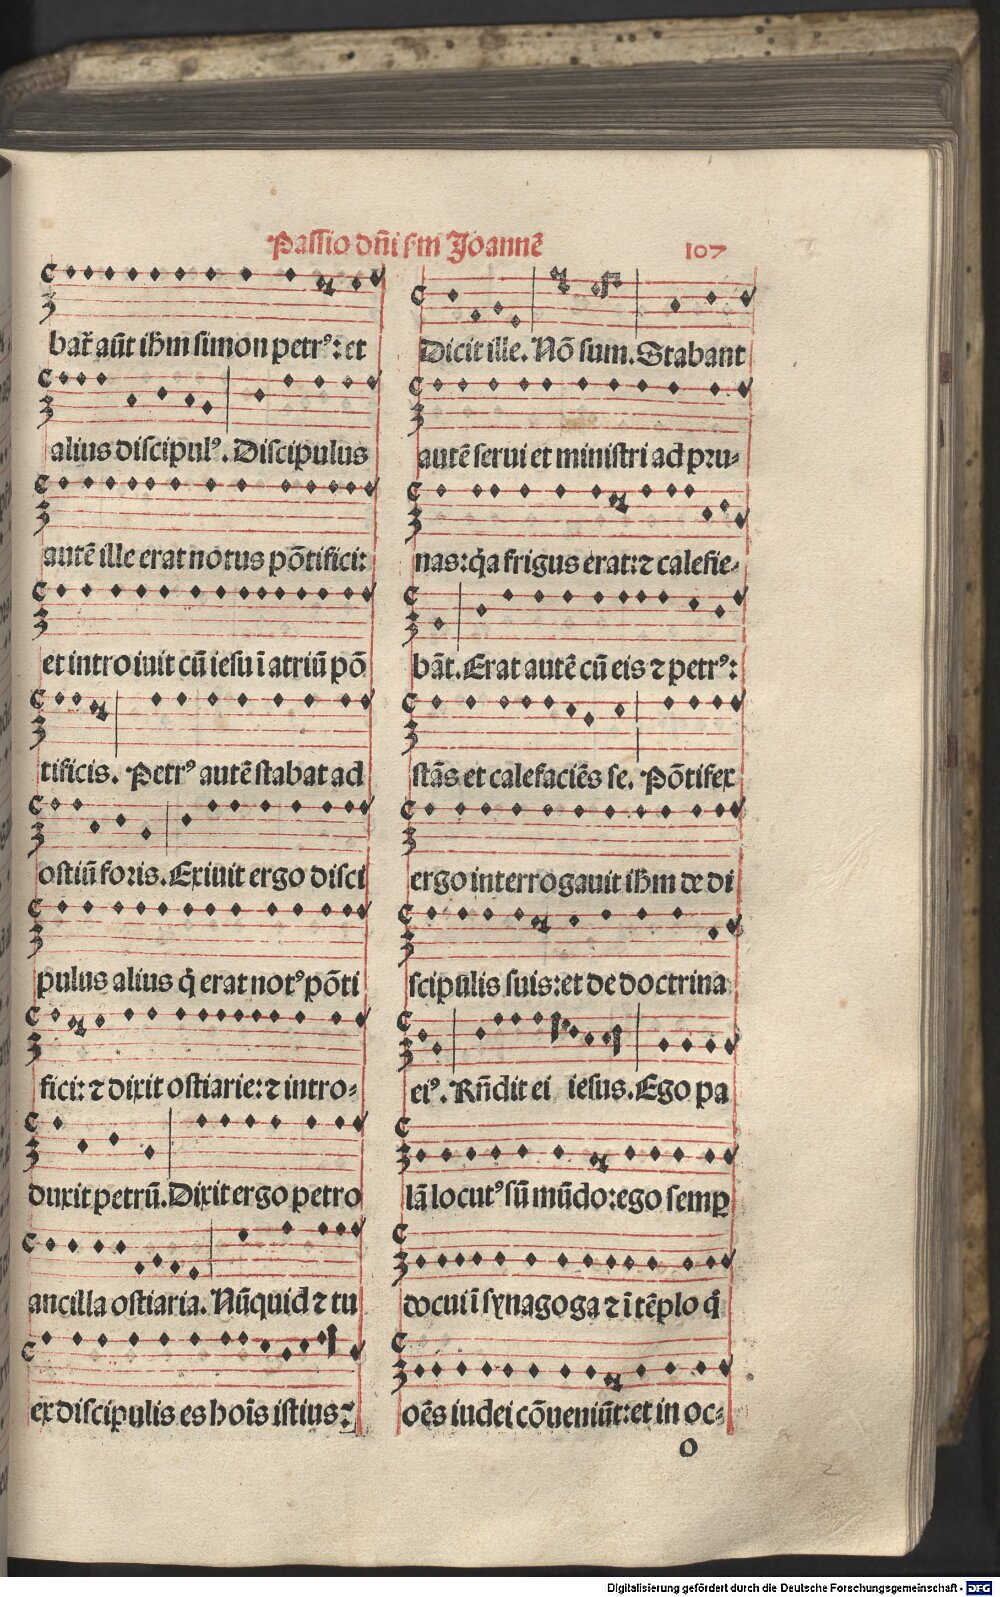 Passio dñi ſm Joannē 107
bat̃ aūt ih̄m ſimon petrꝰ: et
alius diſcipulꝰ. Diſcipulus
autē ille erat notus pōtifici:
et intro iuit cū ieſu ī atriū pō
tificis. Petrꝰ autē ſtabat ad
oſtiū foris. Exiuit ergo diſci
pulus alius q̇ erat notꝰ pōti
fici: ⁊ dixit oſtiarie: ⁊ intro-
duxit petrū. Dixit ergo petro
ancilla oſtiaria. Nūquid ⁊ tu
ex diſcipulis es hoīs iſtius?
Dicit ille. Nō ſum. Stabant
autē ſerui et miniſtri ad pru-
nas: q̇a frigus erat: ⁊ calefie-
bāt. Erat autē cū eis ⁊ petrꝰ:
ſtās et calefaciēs ſe. Pōtifex
ergo interrogauit ih̄m de di
ſcipulis ſuis: et de doctrina
eiꝰ. Rñdit ei ieſus. Ego pa
lā locutꝰ ſū mūdo: ego ſemꝑ
docui ī ſynagoga ⁊ ī tēplo q̇
oēs iudei cōueniūt: et in oc-
o
Digitalisierung gefördert durch die Deutsche Forschungsgemeinschaft - DFG